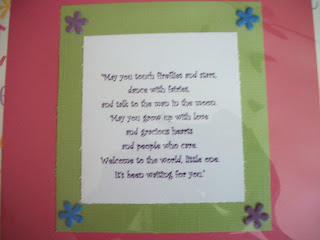 "May you touch fireflies and stars,
dance with fairies,
and talk to the man in the moon.
May you grow up with love
and gracious hearts
and people who care.
Welcome to the world, little one.
It's been waiting for you."